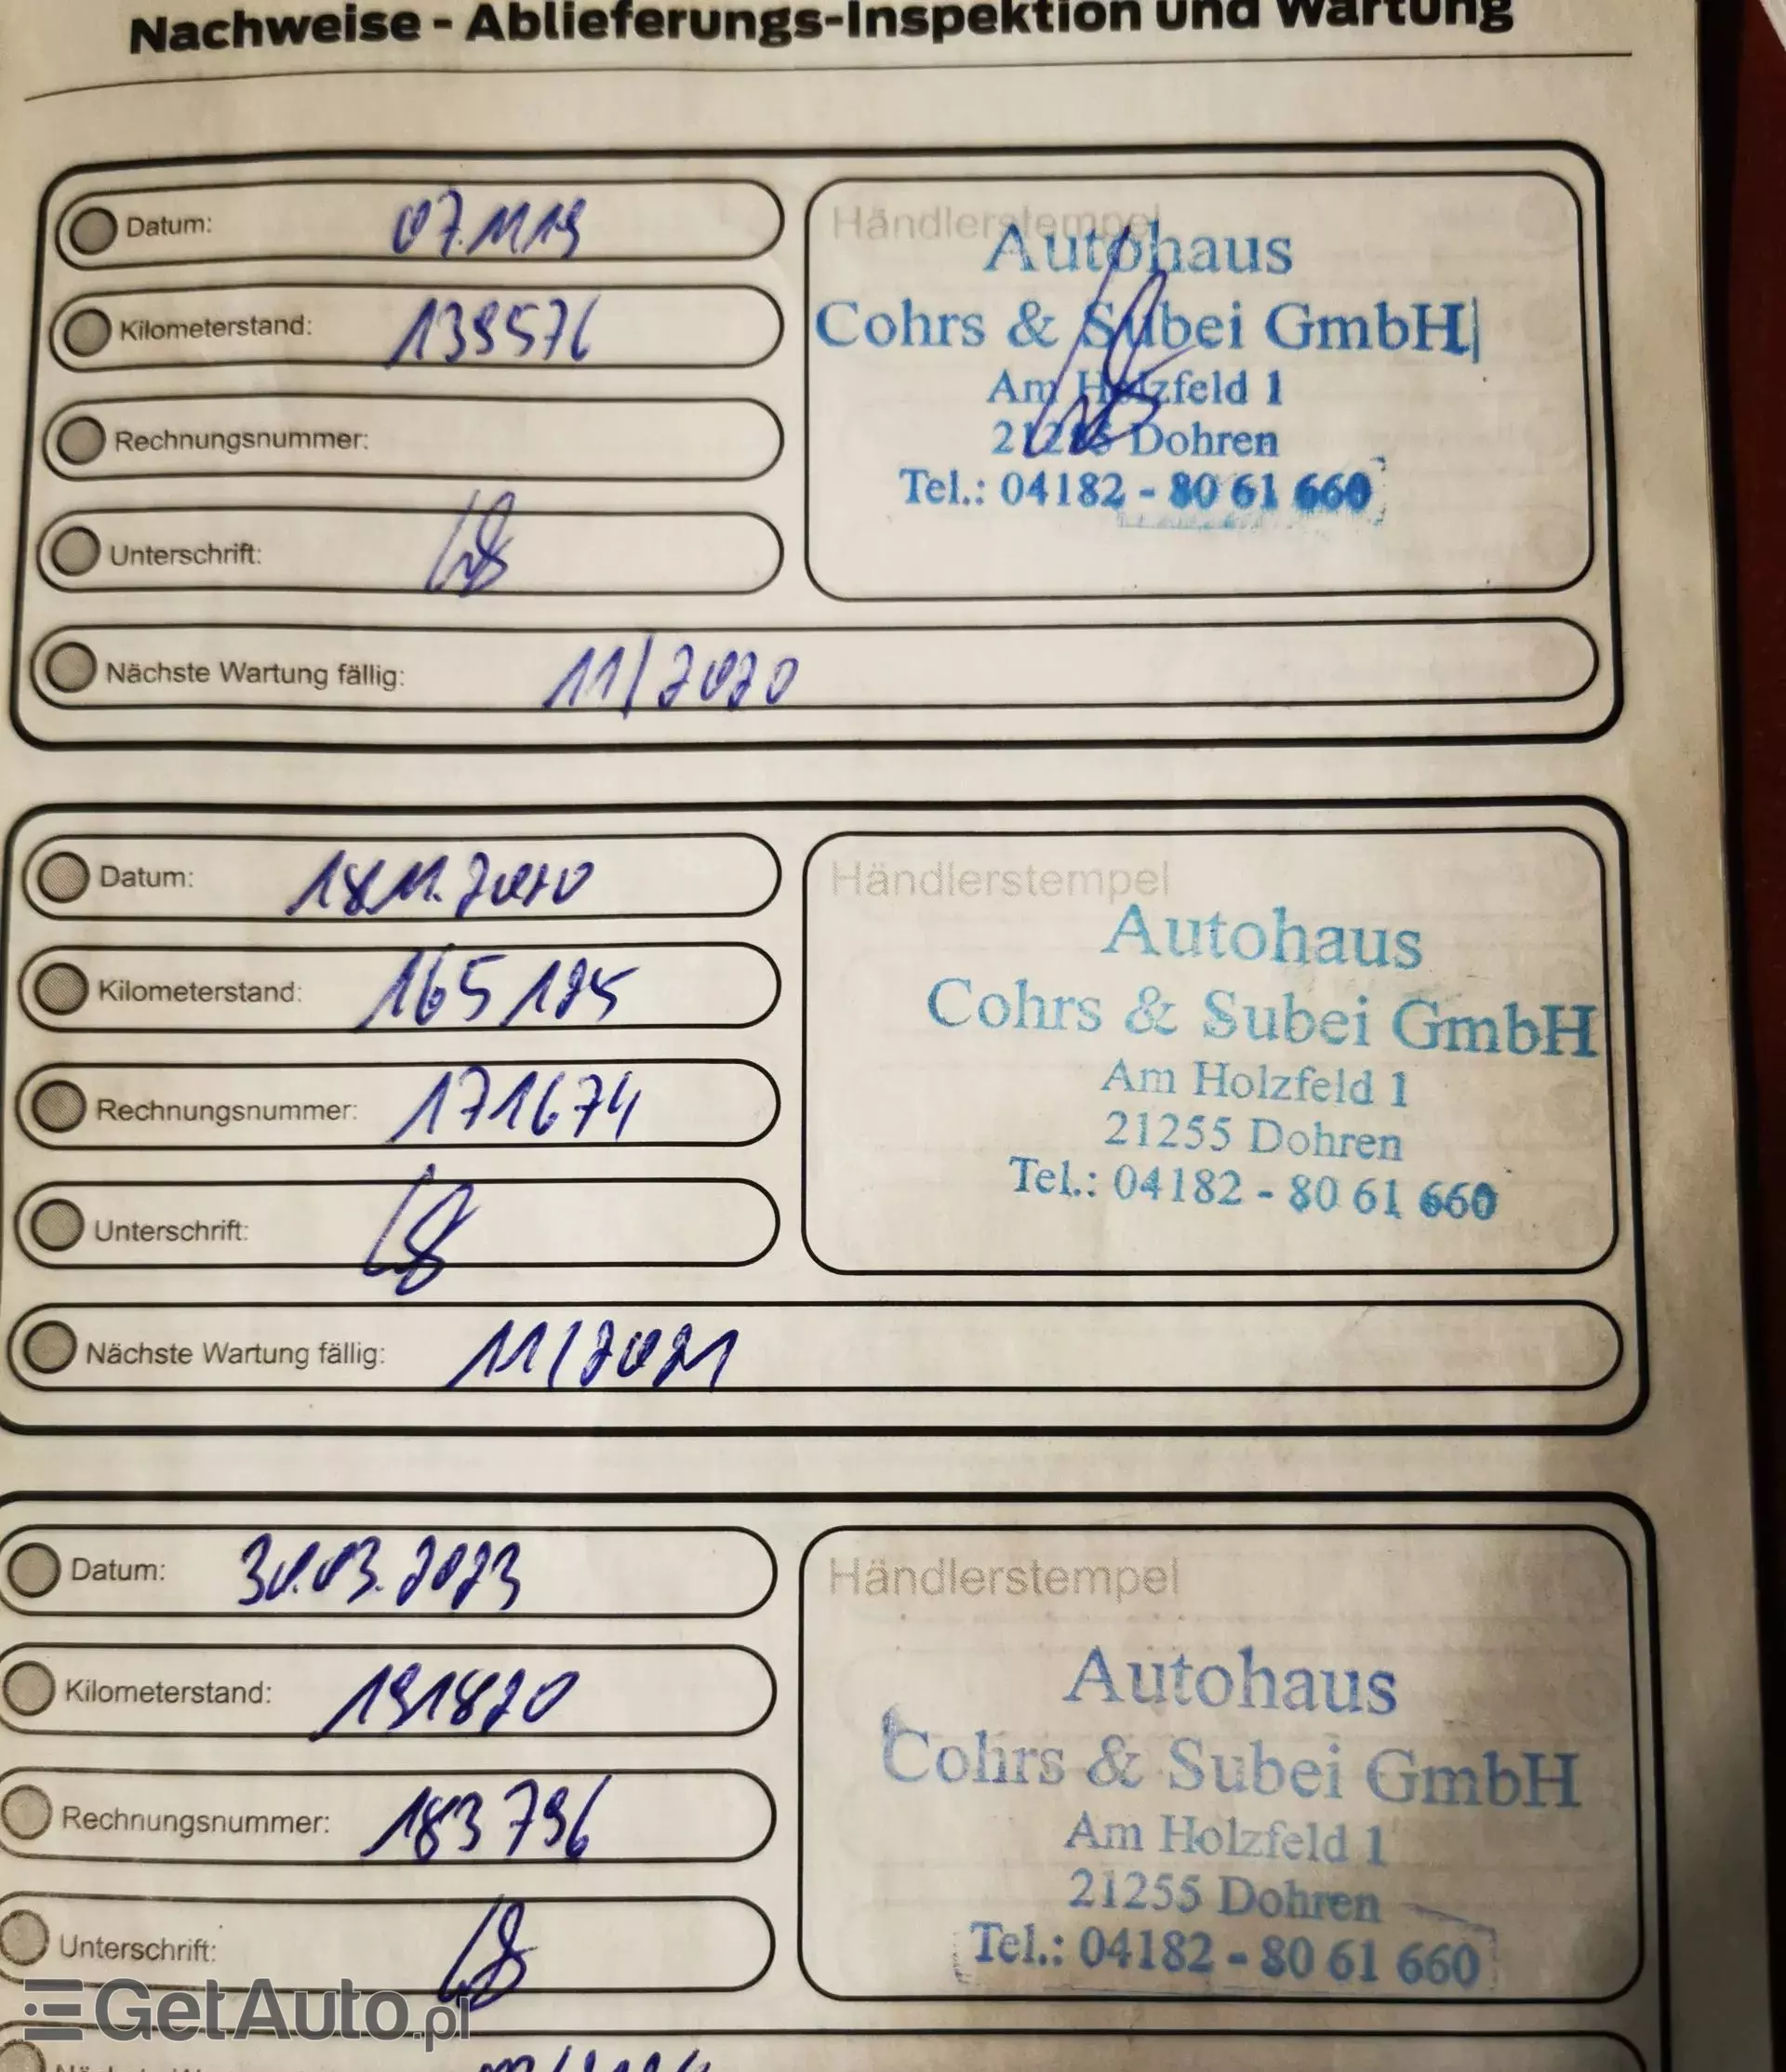 Nachweise - Ablieferungs-Inspektion und Wartung
Datum: 07.11.19
Kilometerstand: 139576
Rechnungsnummer:
Unterschrift:
Nächste Wartung fällig: 11/2020
Händlerstempel
Autohaus
Cohrs & Subei GmbH
Am Holzfeld 1
21255 Dohren
Tel.: 04182 - 80 61 660
Datum: 18.11.2020
Kilometerstand: 165185
Rechnungsnummer: 171674
Unterschrift:
Nächste Wartung fällig: 11/2021
Händlerstempel
Autohaus
Cohrs & Subei GmbH
Am Holzfeld 1
21255 Dohren
Tel.: 04182 - 80 61 660
Datum: 30.03.2023
Kilometerstand: 191820
Rechnungsnummer: 183796
Unterschrift:
Händlerstempel
Autohaus
Cohrs & Subei GmbH
Am Holzfeld 1
21255 Dohren
Tel.: 04182 - 80 61 660
GetAuto.pl